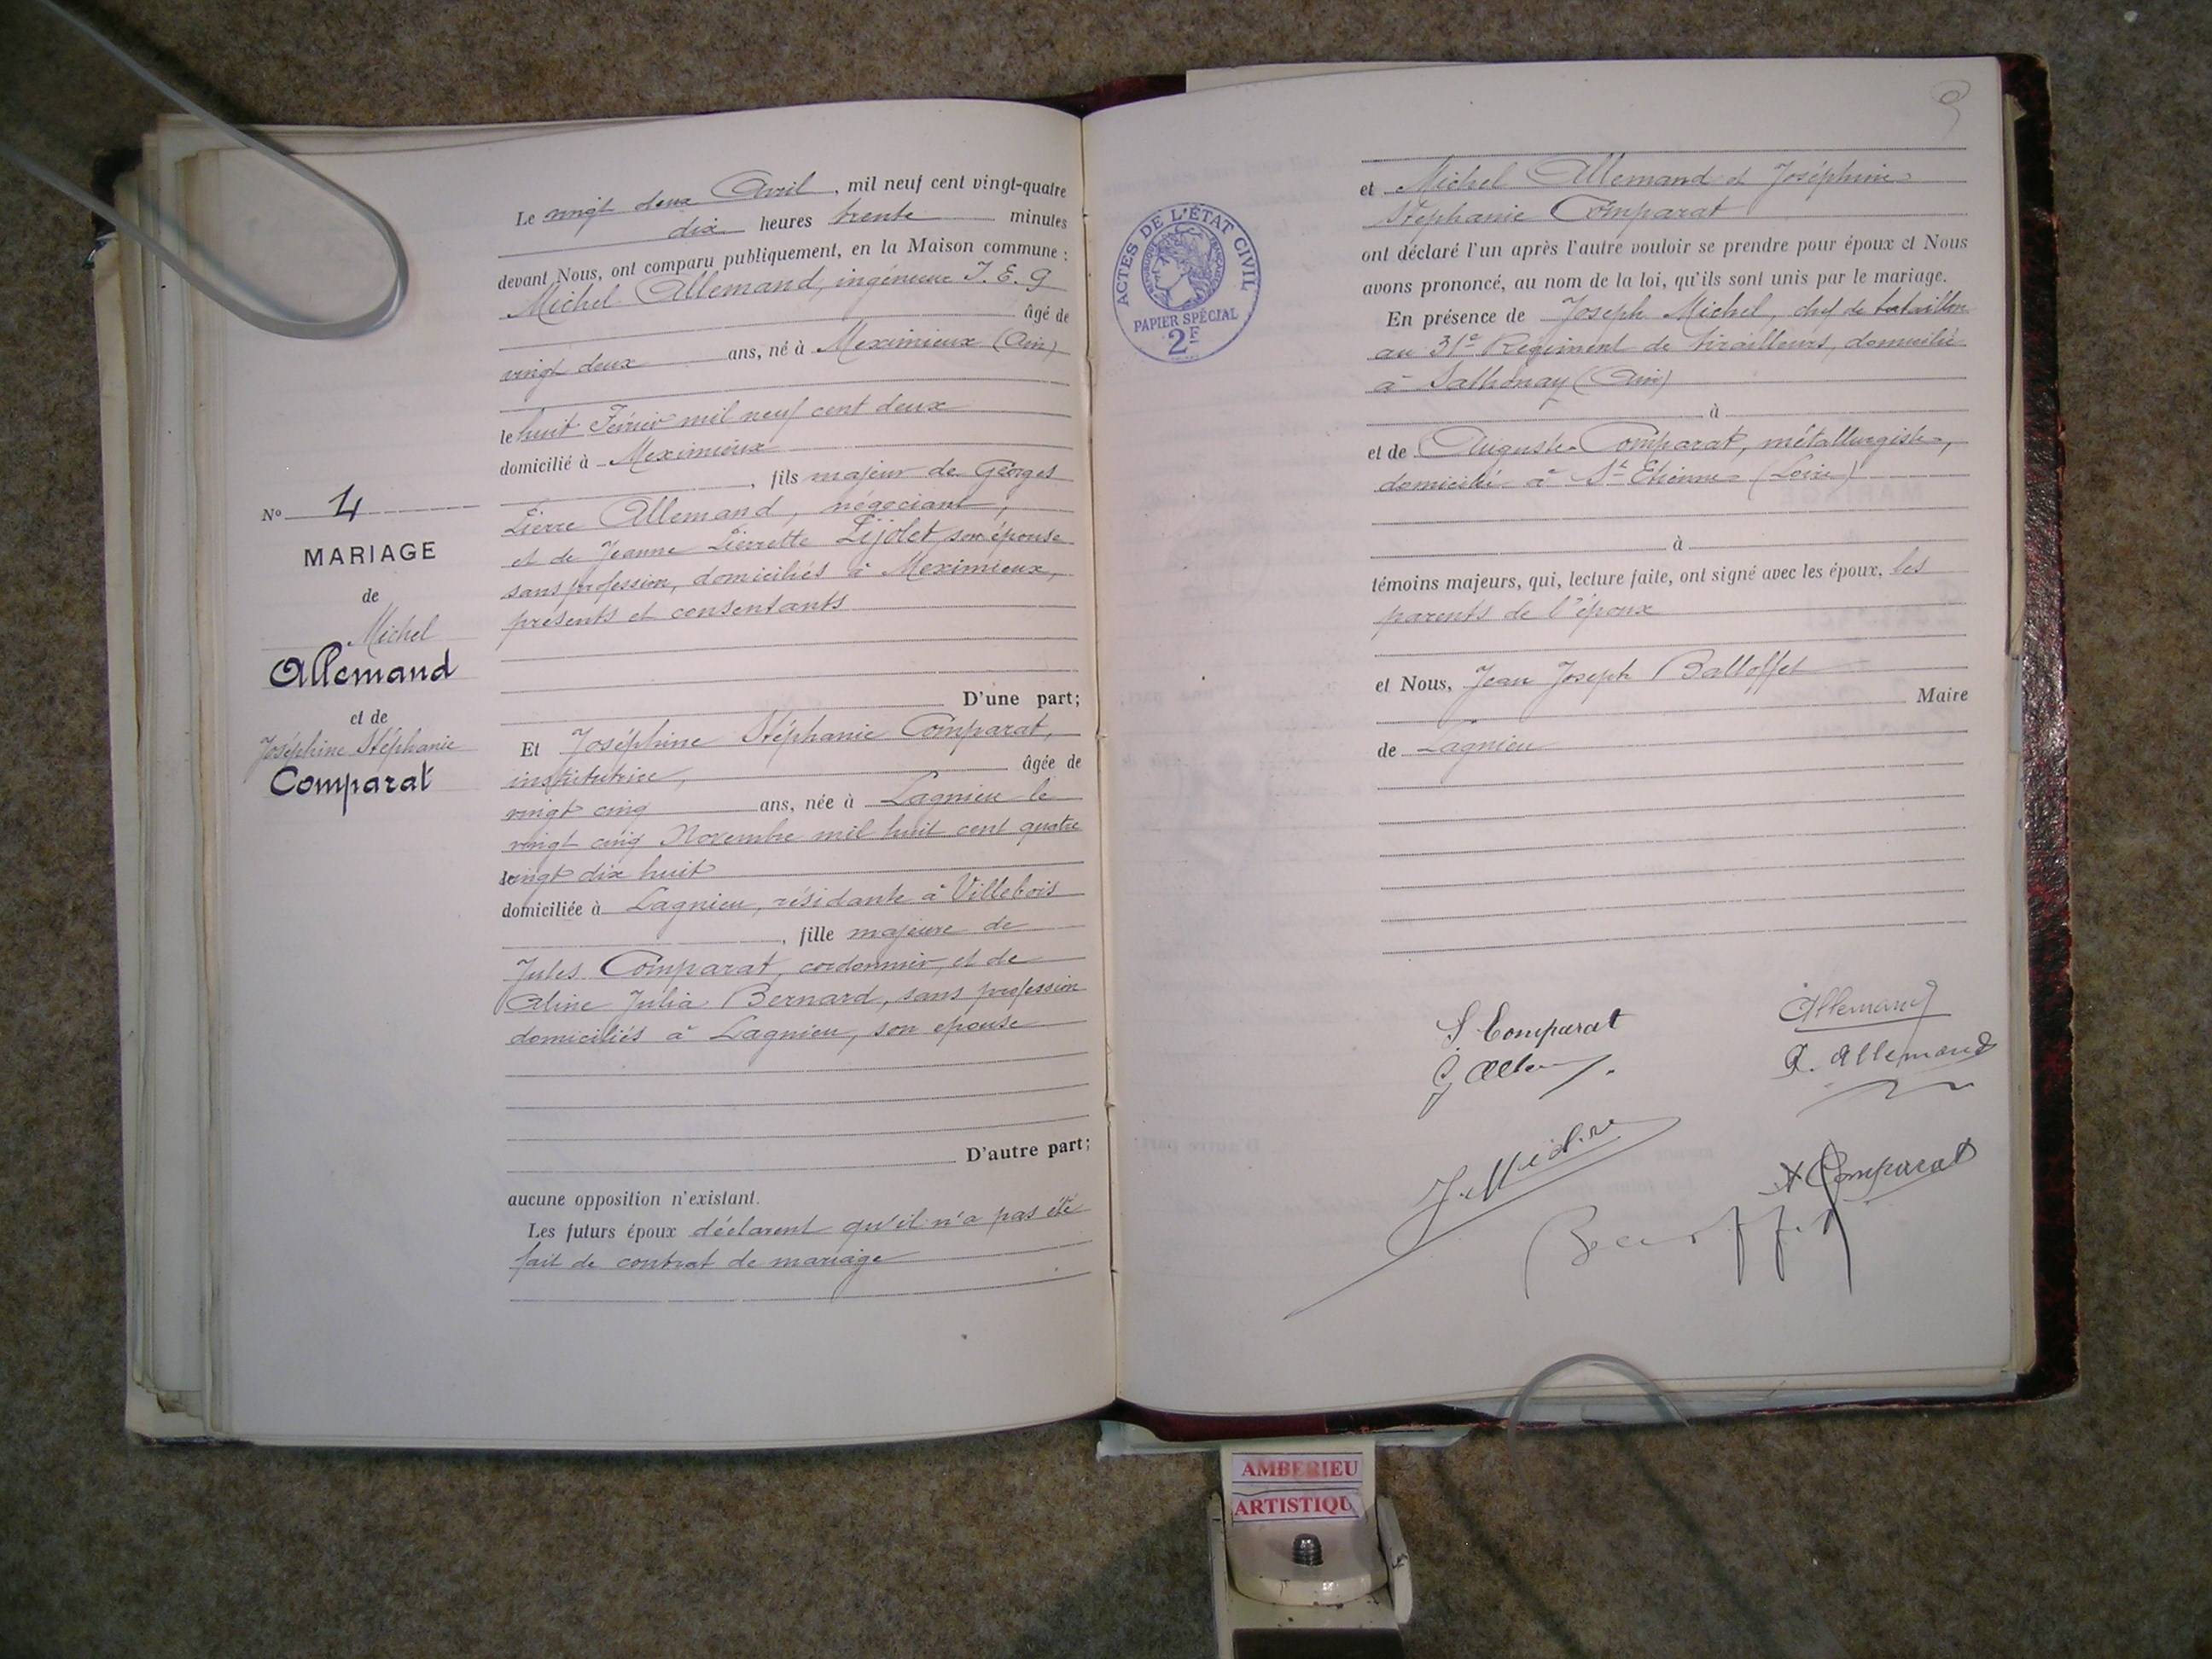 Le vingt deux Avril, mil neuf cent vingt-quatre
dix heures trente minutes
devant Nous, ont comparu publiquement, en la Maison commune :
Michel Allemand, ingénieur I. E. G
âgé de
vingt deux ans, né à Meximieux (Ain)
le huit Février mil neuf cent deux
domicilié à Meximieux
, fils majeur de Georges
Pierre Allemand, négociant,
et de Jeanne Pierrette Pijolet, son épouse
sans profession, domiciliés à Meximieux,
présents et consentants
D'une part;
Nº 4
MARIAGE
de
Michel
Allemand
et de
Joséphine Stéphanie
Comparat
Et Joséphine Stéphanie Comparat,
institutrice, âgée de
vingt cinq ans, née à Lagnieu le
vingt cinq Novembre mil huit cent quatre
vingt dix huit
domiciliée à Lagnieu, résidante à Villebois
, fille majeure de
Jules Comparat, cordonnier, et de
Aline Julia Bernard, sans profession
domiciliés à Lagnieu, son épouse
D'autre part;
aucune opposition n'existant.
Les futurs époux déclarent qu'il n'a pas été
fait de contrat de mariage
9
ACTES DE L'ÉTAT CIVIL
RÉPUBLIQUE FRANÇAISE
PAPIER SPÉCIAL
2F
et Michel Allemand et Joséphine
Stéphanie Comparat
ont déclaré l'un après l'autre vouloir se prendre pour époux et Nous
avons prononcé, au nom de la loi, qu'ils sont unis par le mariage.
En présence de Joseph Michel, chef de bataillon
au 31e Régiment de tirailleurs, domicilié
à Sathonay (Ain)
à
et de Auguste Comparat, métallurgiste,
domicilié à St Etienne (Loire)
à
témoins majeurs, qui, lecture faite, ont signé avec les époux, les
parents de l'époux
et Nous, Jean Joseph Balloffet
Maire
de Lagnieu
S Comparat
Allemand
A. Allemand
A Comparat
AMBERIEU
ARTISTIQU